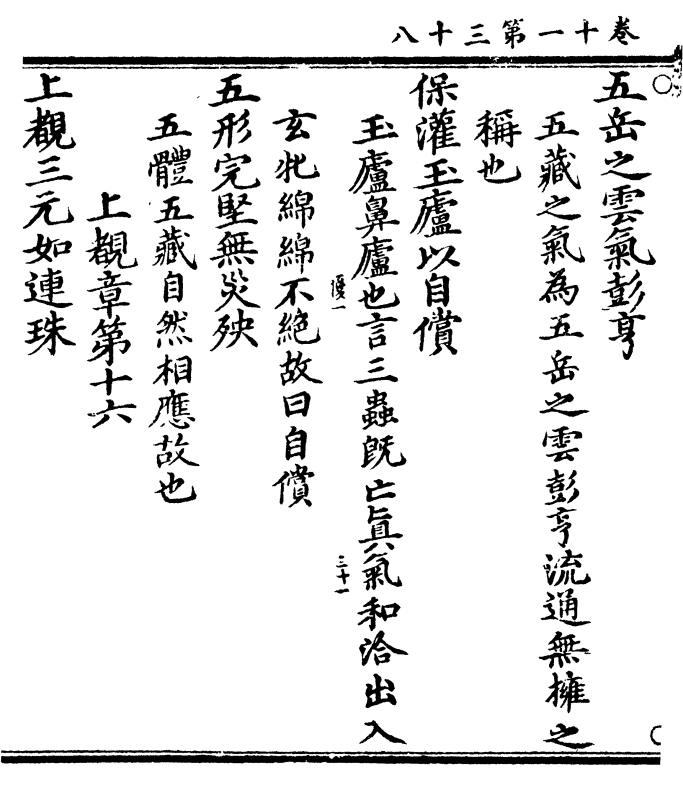 卷十一第三十八
五岳之雲氣彭亨
五藏之氣為五岳之雲彭亨流通無擁之
稱也
保灌玉廬以自償
玉廬鼻廬也言三蟲旣亡眞氣和洽出入
優一
三十一
玄牝綿綿不絕故曰自償
五形完堅無災殃
五體五藏自然相應故也
上覩章第十六
上覩三元如連珠